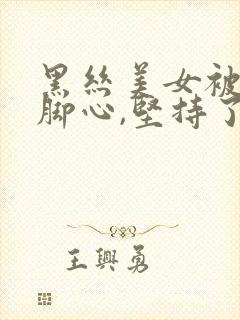 黑丝美女被
脚心,坚持了
王興勇